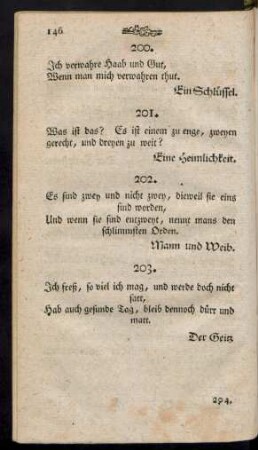 146
200.
Ich verwahre Haab und Gut,
Wenn man mich verwahren thut.
Ein Schlüssel.
201.
Was ist das? Es ist einem zu enge, zweyen
gerecht, und dreyen zu weit?
Eine Heimlichkeit.
202.
Es sind zwey und nicht zwey, dieweil sie eins
sind worden,
Und wenn sie sind entzweyt, nennt mans den
schlimmsten Orden.
Mann und Weib.
203.
Ich freß, so viel ich mag, und werde doch nicht
satt,
Hab auch gesunde Tag, bleib dennoch dürr und
matt.
Der Geitz
204.